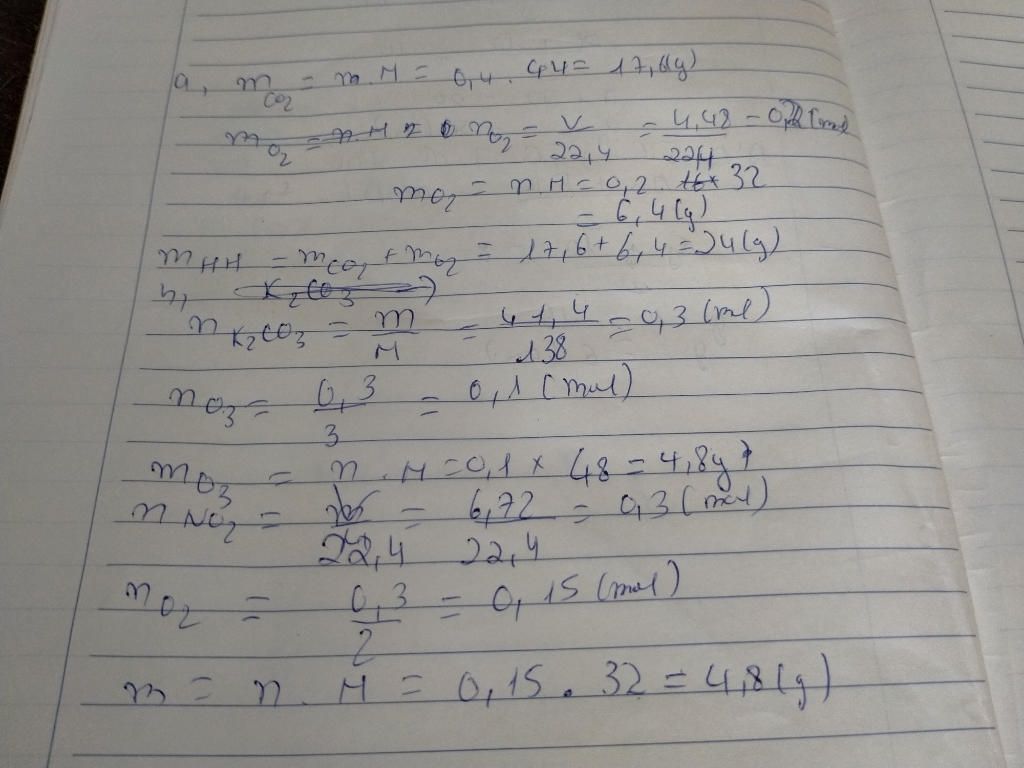 a, mCO2 = n.M = 0,4 . 44 = 17,6(g)
mO2 = n.M = nO2 = V/22,4 = 4,48/22,4 = 0,2(mol)
mO2 = n M = 0,2 . 32
= 6,4(g)
mHH = mCO2 + mO2 = 17,6 + 6,4 = 24(g)
b, K2CO3
nK2CO3 = m/M = 41,4/138 = 0,3(mol)
nO3 = 0,3/3 = 0,1(mol)
mO3 = n.M = 0,1 x 48 = 4,8g
nNO2 = V/22,4 = 6,72/22,4 = 0,3(mol)
nO2 = 0,3/2 = 0,15(mol)
m = n.M = 0,15 . 32 = 4,8(g)